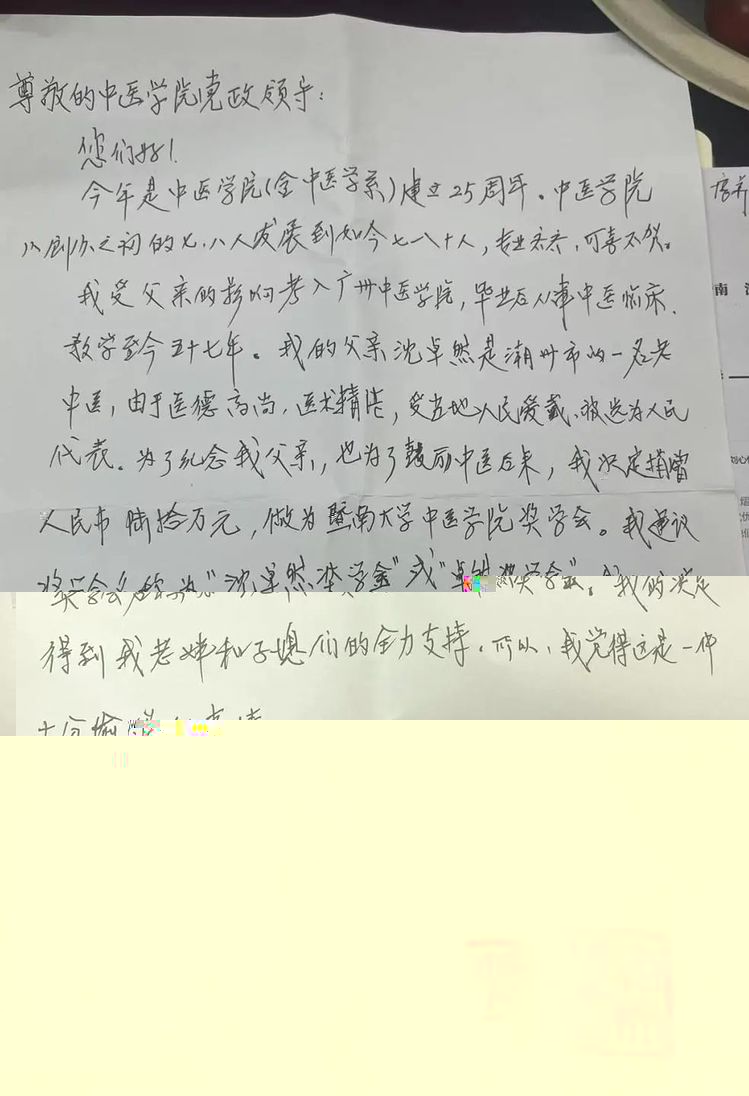 尊敬的中医学院党政领导：
您们好！
今年是中医学院(含中医学系)建立25周年。中医学院
从创办之初的七、八人发展到如今七一八十人，专业齐齐，可喜不贺。
我受父亲的影响考入广州中医学院，毕业后从事中医临床、
教学至今五十七年。我的父亲沈卓然是潮州市的一名老
中医，由于医德高尚，医术精湛，受当地人民爱戴，被选为人民
代表。为了纪念我父亲，也为了鼓励中医后来，我决定捐留
人民币陆拾万元，做为暨南大学中医学院奖学会。我建议
奖学会名称为“沈卓然奖学金”或“卓然奖学金”。我的决定
得到我老婶和子媳们的全力支持。所以，我觉得这是一件
十分愉
培养
南